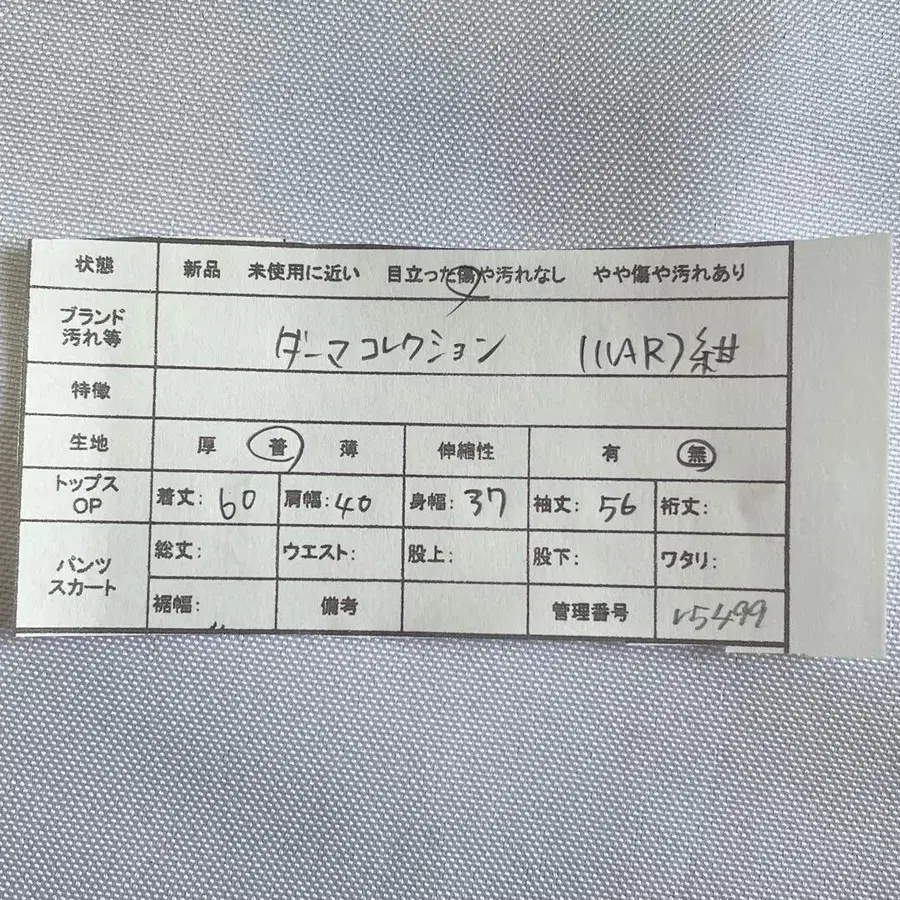 状態 新品 未使用に近い 目立った傷や汚れなし やや傷や汚れあり
ブランド
汚れ等
ダーマコレクション (11AR)紺
特徴
生地 厚 普 薄 伸縮性 有 無
トップス
OP
着丈: 60 肩幅: 40 身幅: 37 袖丈: 56 裄丈:
パンツ
スカート
総丈: ウエスト: 股上: 股下: ワタリ:
裾幅: 備考 管理番号 r5499